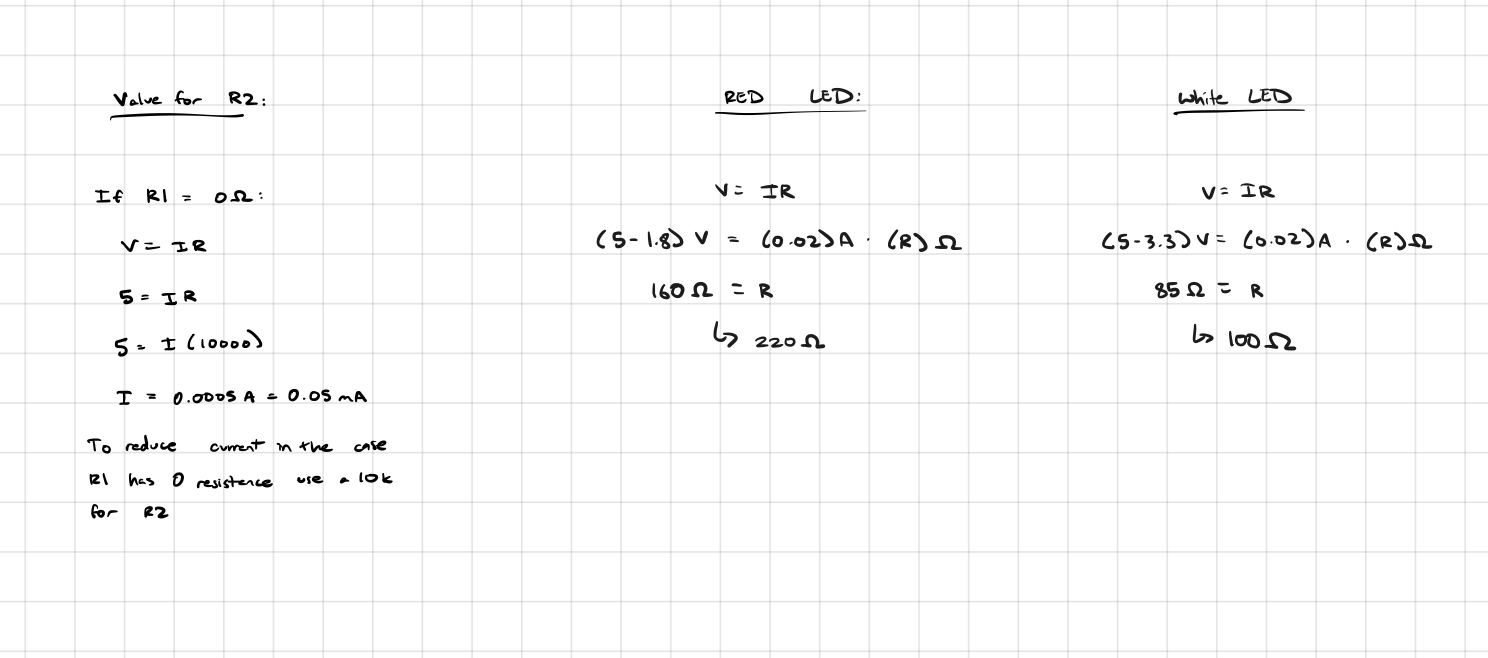 Value for R2:
If R1 = 0Ω:
V = IR
5 = IR
5 = I (10000)
I = 0.0005 A = 0.05 mA
To reduce current in the case
R1 has 0 resistence use a 10k
for R2
RED LED:
V = IR
(5-1.8) V = (0.02) A · (R) Ω
160 Ω = R
↳ 220 Ω
White LED
V = IR
(5-3.3) V = (0.02) A · (R) Ω
85 Ω = R
↳ 100 Ω